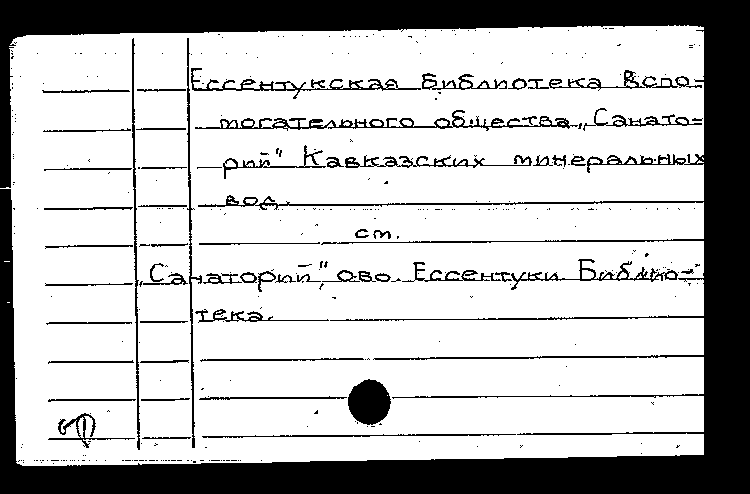 Ессентукская библиотека Вспо=
могательного общества „Санато=
рий" Кавказских минеральных
вод.
см.
„Санаторий", ово. Ессентуки. Библио=
тека.